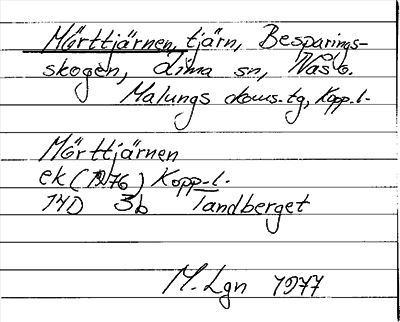 Mörttjärnen, tjärn, Besparings-
skogen, Lima sn, Näs o.
Malungs doms.tg, Kopp.l.
Mörttjärnen
ek (1976) Kopp.l.
14D 3b landberget
M. Lgn 1977